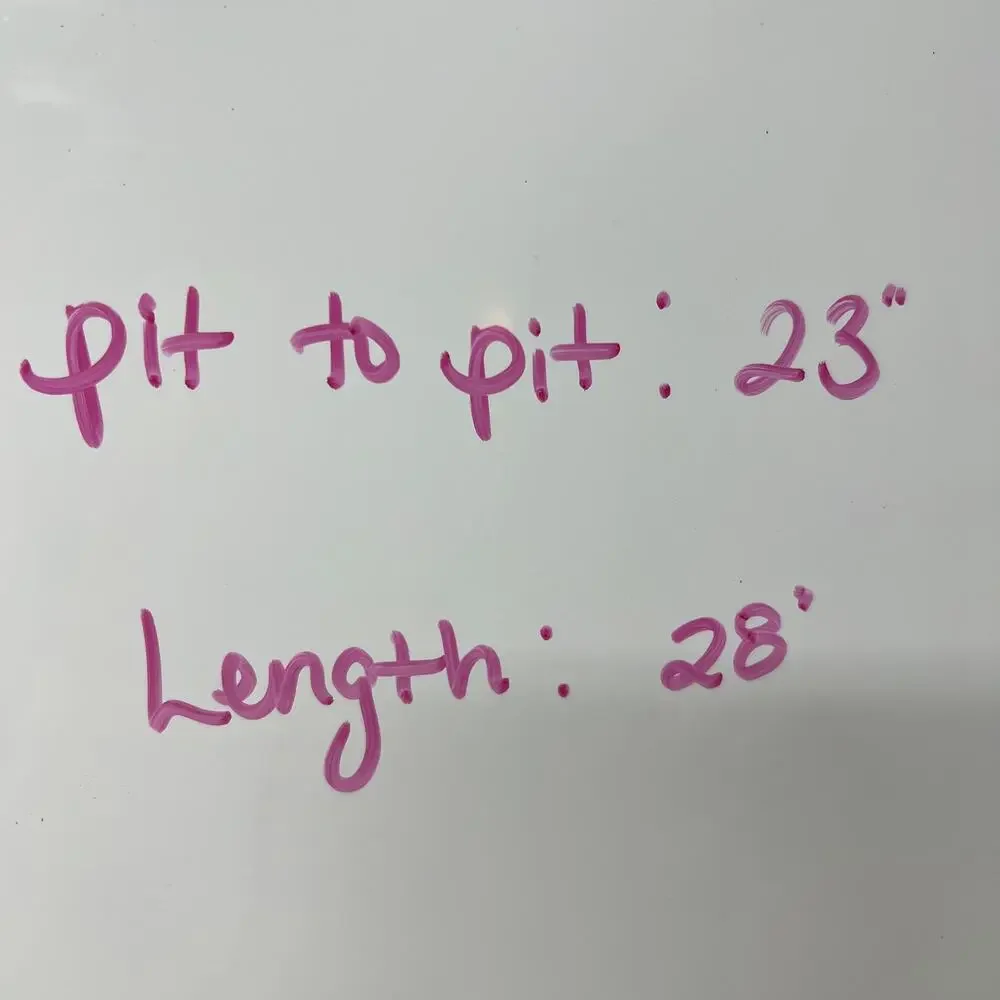 pit to pit: 23"
Length: 28"